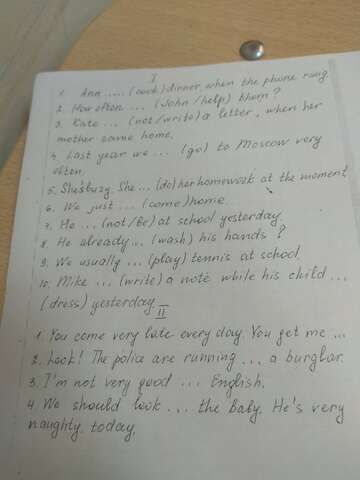 I
1. Ann .... (cook) dinner, when the phone rang.
2. How often ... (John / help) them?
3. Kate ... (not / write) a letter, when her
mother came home.
4. Last year we ... (go) to Moscow very
often.
5. She's busy. She ... (do) her homework at the moment.
6. We just ... (come) home.
7. He ... (not / be) at school yesterday.
8. He already ... (wash) his hands?
9. We usually ... (play) tennis at school.
10. Mike ... (write) a note while his child ...
(dress) yesterday
II
1. You come very late every day. You get me ...
2. Look! The police are running ... a burglar.
3. I'm not very good ... English.
4. We should look ... the baby. He's very
naughty today.